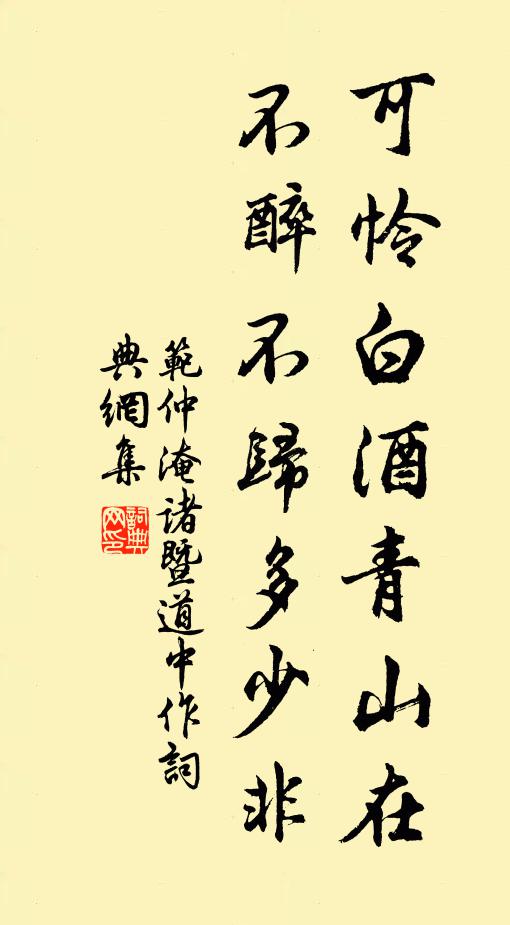 可憐白酒青山在
不醉不歸多少非
範仲淹諸暨道中作詞
典網集
詞典網印